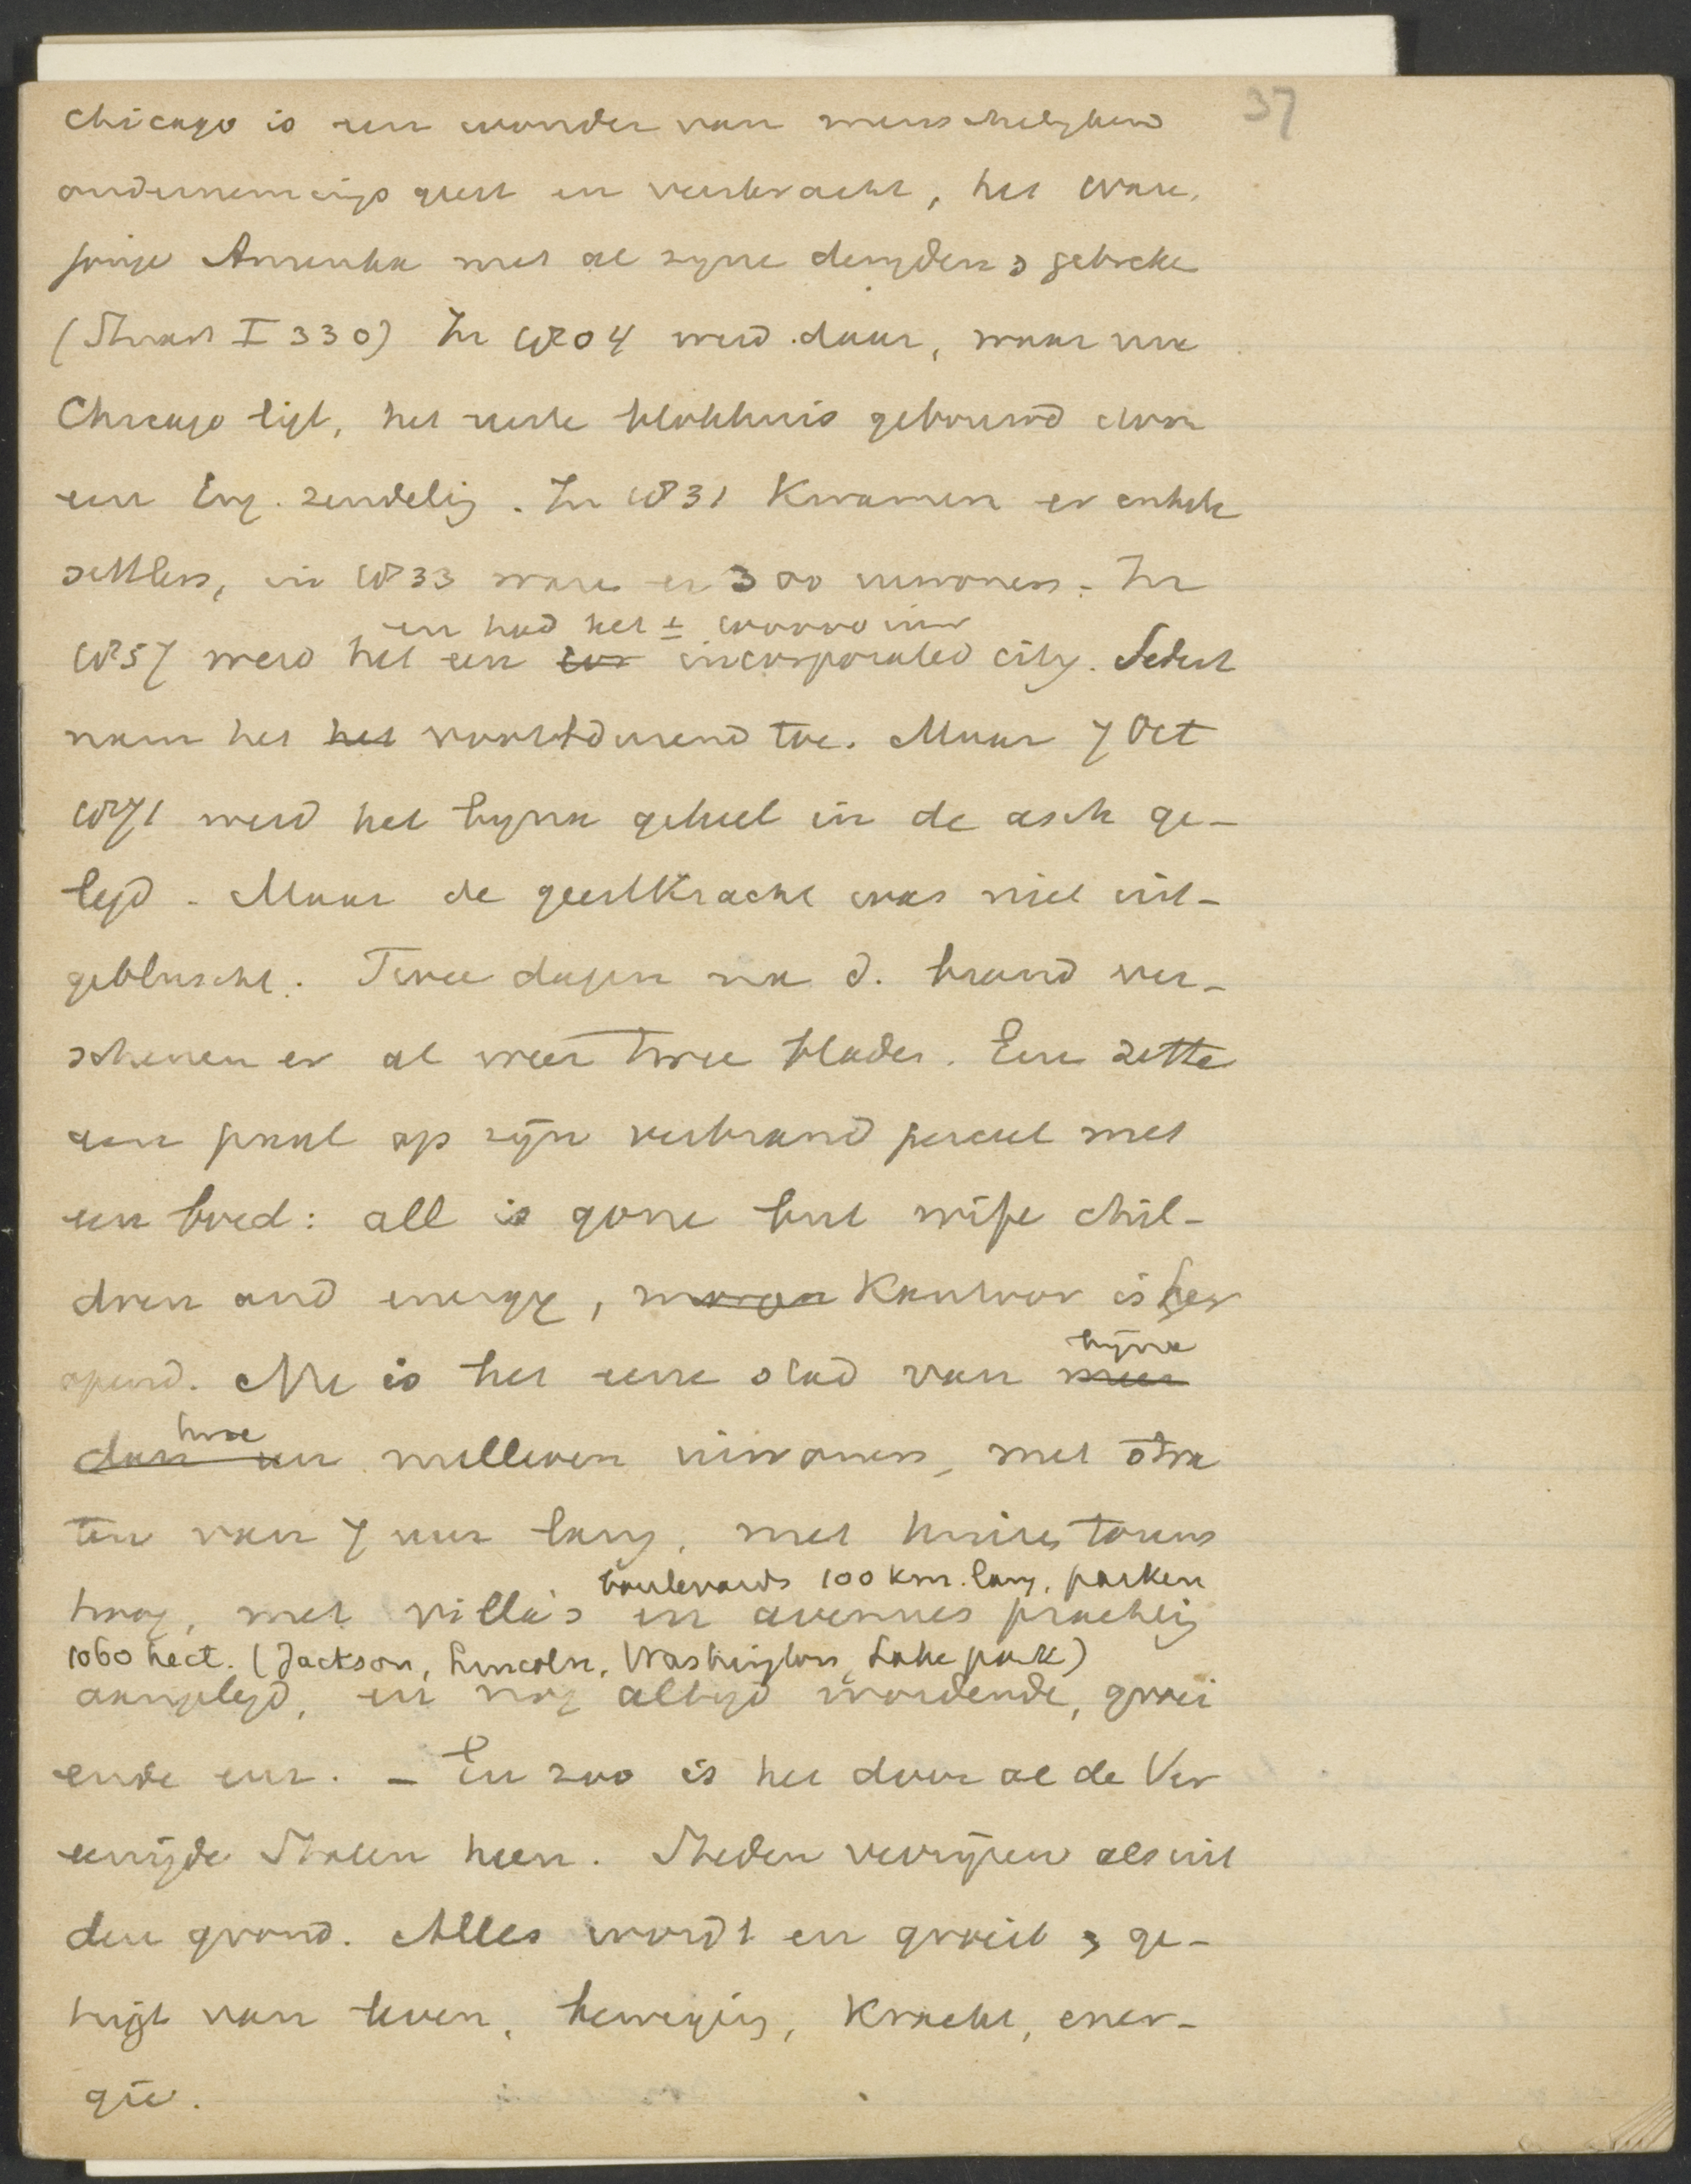 37
Chicago is een wonder van menschelyken
ondernemingsgeest en veerkracht, het ware,
jonge Amerika met al zyne deugden & gebreke
(Stuart I 330) In 1804 werd daar, waar nu
Chicago ligt, het eerste blokhuis gebouwd door
een Eng. zendeling. In 1831 kwamen er enkele
settlers, in 1833 ware er 300 inwoners. In
en had het ± inw
1857 werd het een incorporated city. Sedert
nam het het voortdurend toe. Maar 7 Oct
1871 werd het byna geheel in de asch ge-
legd. Maar de geestkracht was niet uit-
gebluscht. Twee dagen na d. brand ver-
schenen er al weer twee bladen. Een zette
een paal op zyn verbrand perceel met
een bord: all is gone but wife chil-
dren and energy, morgen Kantoor is her
opend. Nu is het eene stad van meer
byna
dan een millioen inwoners, met stra
twee
ten van 7 uur lang, met huizen torens
boulevards 100 km. lang, parken
hoog, met villa's en avenues prachtig
1060 hect. (Jackson, Lincoln, Washington, Lake park)
aangelegd, en nog altyd wordende, groei
ende enz. – En zoo is het door al de Ver
eenigde Staten heen. Steden verryzen als uit
den grond. Alles wordt en groeit & ge-
tuigt van leven, beweging, kracht, ener-
gie.